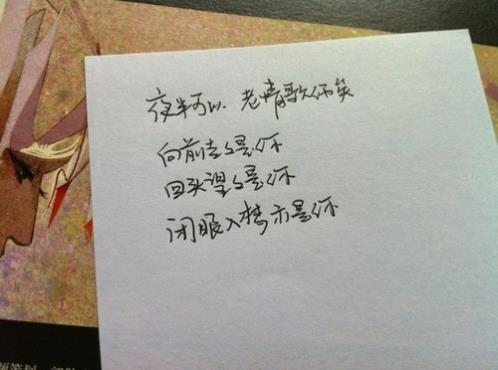 夜半可以 老情歌
向前走是你
回头望是你
闭眼入梦亦是你